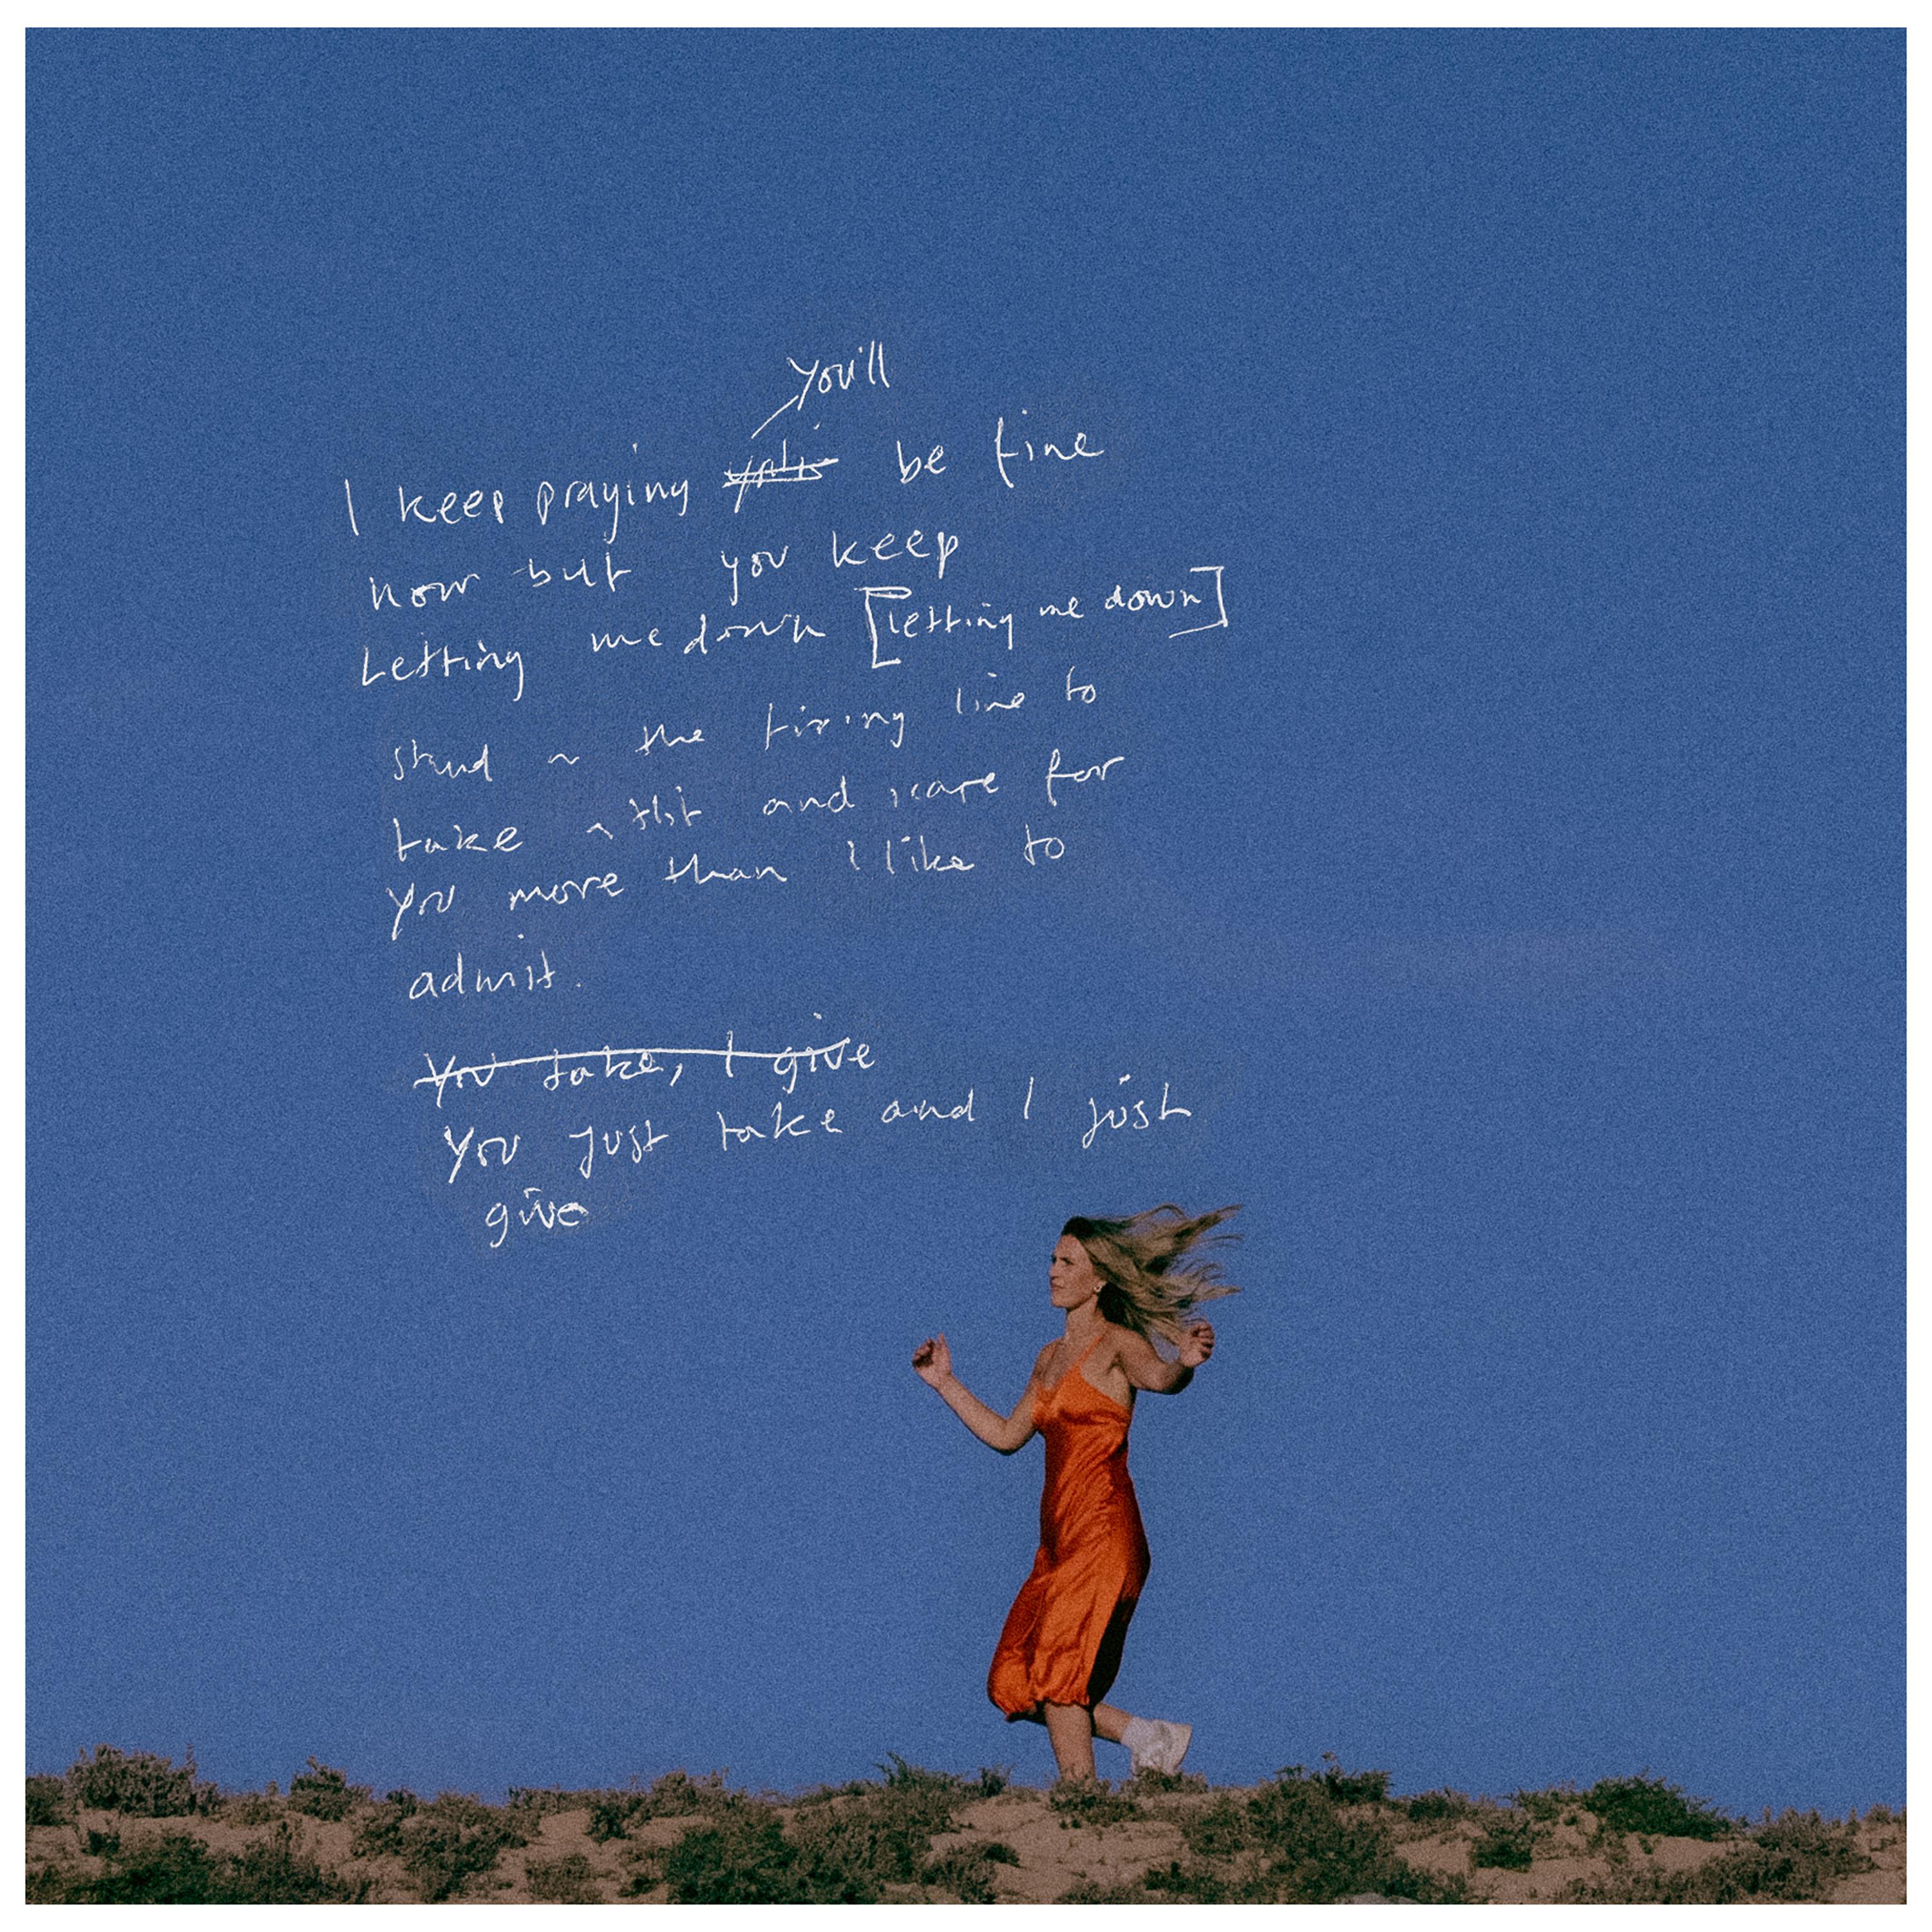 you'll
I keep praying be fine
now but you keep
Letting me down [letting me down]
stand in the firing line to
take a hit and care for
you more than I like to
admit.
You take, I give
You just take and I just
give